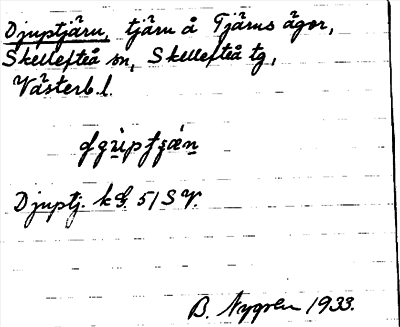 Djuptjärn, tjärn å Tjärns ägor,
Skellefteå sn, Skellefteå tg,
Västerb.l.
Djuptj. k 51 S V.
B. Nygren 1933.